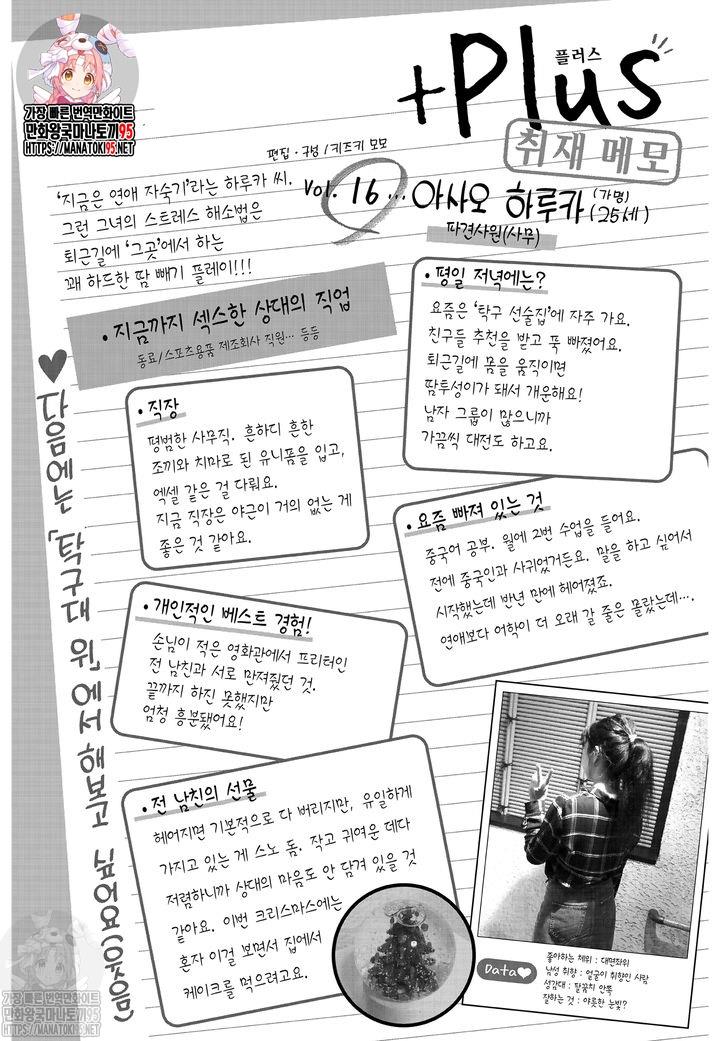 가장 빠른 번역만화이트
만화왕국마나토끼95
HTTPS://MANATOKI95.NET
+Plus
플러스
취재 메모
편집·구성 / 키즈키 모모
Vol. 16 … 아사오 하루카 (가명) (25세)
파견사원(사무)
'지금은 연애 자숙기'라는 하루카 씨.
그런 그녀의 스트레스 해소법은
퇴근길에 '그곳'에서 하는
꽤 하드한 땀 빼기 플레이!!!
• 지금까지 섹스한 상대의 직업
동료/스포츠용품 제조회사 직원… 등등
• 평일 저녁에는?
요즘은 '탁구 선술집'에 자주 가요.
친구들 추천을 받고 푹 빠졌어요.
퇴근길에 몸을 움직이면
땀투성이가 돼서 개운해요!
남자 그룹이 많으니까
가끔씩 대전도 하고요.
• 직장
평범한 사무직. 흔하디 흔한
조끼와 치마로 된 유니폼을 입고,
엑셀 같은 걸 다뤄요.
지금 직장은 야근이 거의 없는 게
좋은 것 같아요.
• 요즘 빠져 있는 것
중국어 공부. 월에 2번 수업을 들어요.
전에 중국인과 사귀었거든요. 말을 하고 싶어서
시작했는데 반년 만에 헤어졌죠.
연애보다 어학이 더 오래 갈 줄은 몰랐는데….
• 개인적인 베스트 경험!
손님이 적은 영화관에서 프리터인
전 남친과 서로 만져줬던 것.
끝까지 하진 못했지만
엄청 흥분됐어요!
• 전 남친의 선물
헤어지면 기본적으로 다 버리지만, 유일하게
가지고 있는 게 스노 돔. 작고 귀여운 데다
저렴하니까 상대의 마음도 안 담겨 있을 것
같아요. 이번 크리스마스에는
혼자 이걸 보면서 집에서
케이크를 먹으려고요.
♥다음에는 「탁구대 위」에서 해보고 싶어요(웃음)
Data♥
좋아하는 체위 : 대면좌위
남성 취향 : 얼굴이 취향인 사람
성감대 : 팔꿈치 안쪽
잘하는 것 : 야릇한 눈빛?
가장 빠른 번역만화이트
만화왕국마나토끼95
HTTPS://MANATOKI95.NET